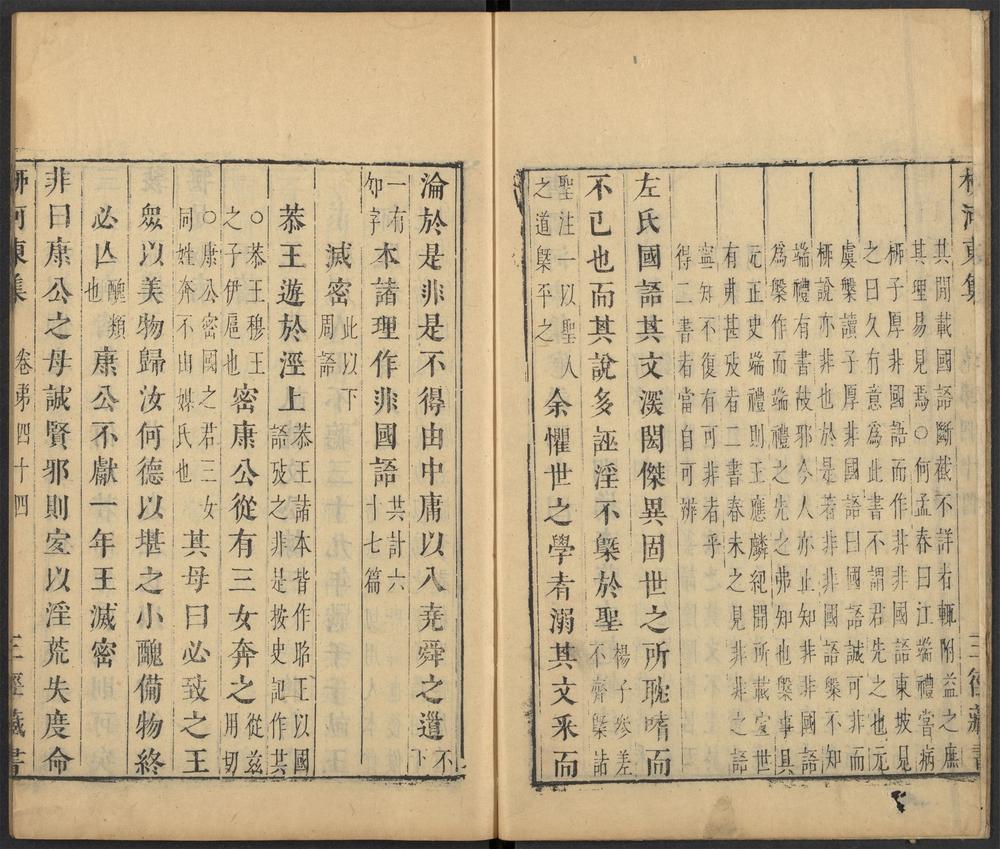 柳河東集
三徑藏書
其間載國語斷截不詳者輒附益之庶
其理易見焉○何孟春曰江端禮嘗病
柳子厚非國語而作非非國語東坡見
之曰久有意為此書不謂君先之也元
虞槃讀子厚非國語曰國語誠可非而
柳說亦非也於是著非非國語槃不知
端禮有書彼耶今人亦止知非非國語
為槃作而端禮之先之弗知也槃事具
元正史端禮則王應麟紀聞所載定世
有弗甚攷者二書春未之見非非之語
寧知不復有可非者乎
得二書者當自可辨
左氏國語其文深閎傑異固世之所耽嗜而
不已也而其說多誣淫不槩於聖楊子參差不齊槩諸
聖注一以聖人之道槩平之余懼世之學者溺其文采而
淪於是非是不得由中庸以入堯舜之道不下
一有句字本諸理作非國語共計六十七篇
滅密此以下周語
恭王遊於涇上恭王諸本皆作昭王以國語攷之非是按史記作共
○恭王穆王之子伊扈也密康公從有三女奔之從茲用切
○康公密國之君三女同姓奔不由媒氏也其母曰必致之王
衆以美物歸汝何德以堪之小醜備物終
必亡醜類也康公不獻一年王滅密
非曰康公之母誠賢邪則宜以淫荒失度命
柳河東集
卷第四十四
三徑藏書